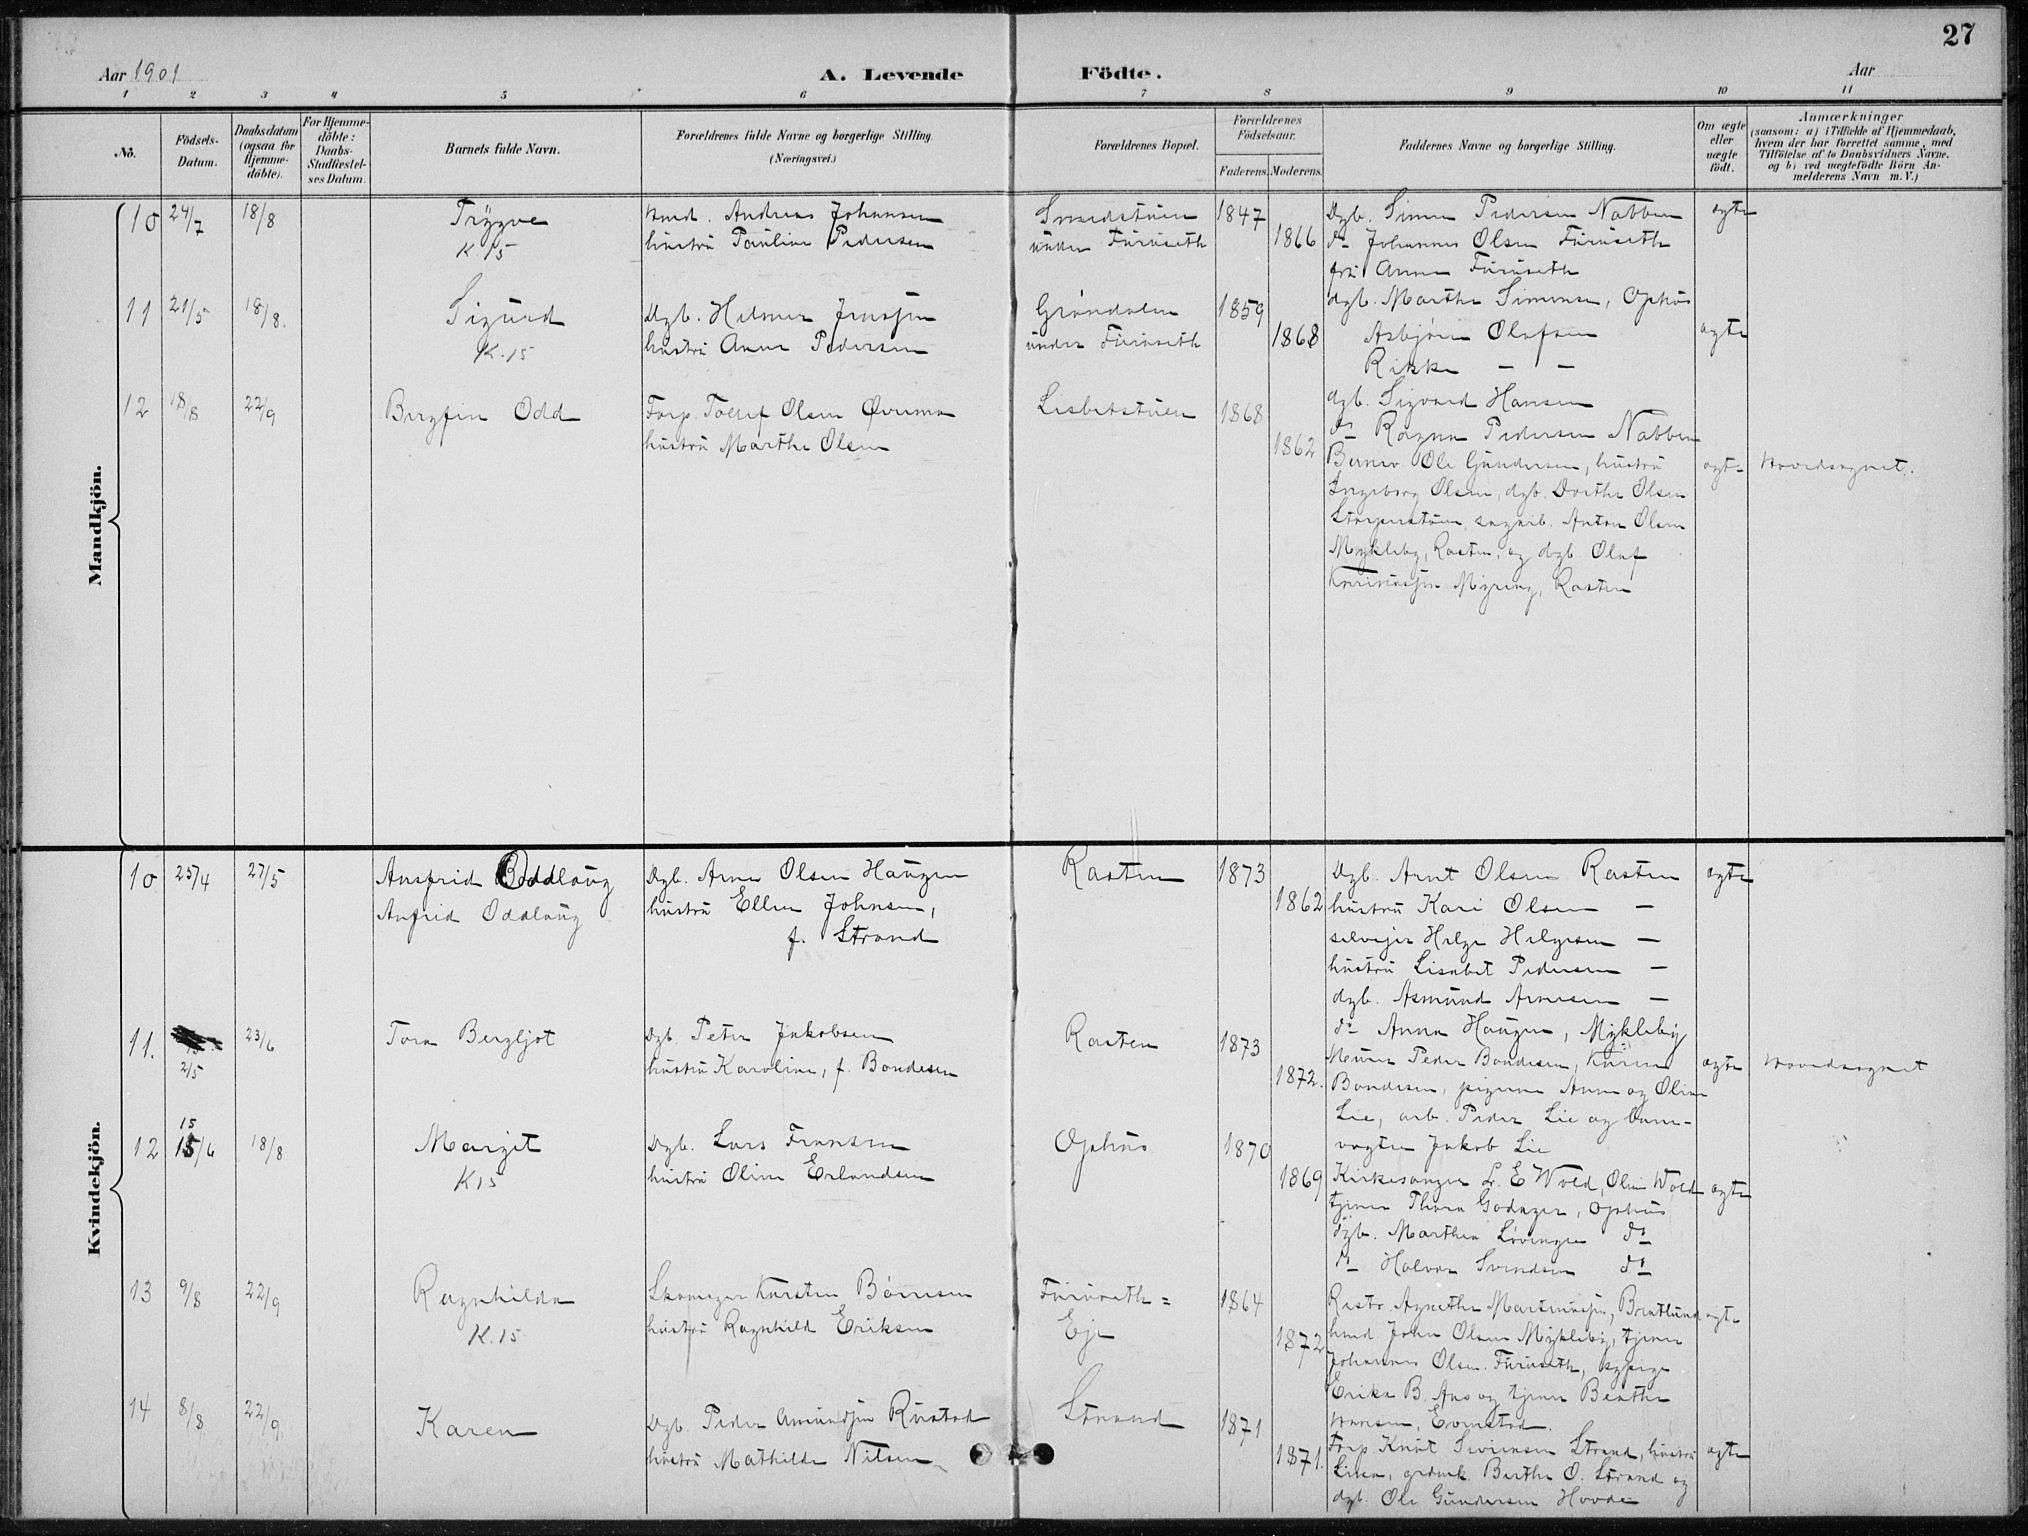 27
Aar 1901
A. Levende Födte.
Aar
1 2 3 4 5 6 7 8 9 10 11
No.
Födsels-Datum.
Daabsdatum (ogsaa for Hjemme-döbte).
For Hjemme-döbte: Daabs-Stadfæstel-ses Datum.
Barnets fulde Navn.
Forældrenes fulde Navne og borgerlige Stilling.
(Næringsvei.)
Forældrenes Bopæl.
Forældrenes Födselsaar.
Faderens. Moderens.
Faddernes Navne og borgerlige Stilling.
Om ægte eller uægte födt.
Anmærkninger
(saasom: a) i Tilfælde af Hjemmedaab, hvem der har forrettet samme, med Tilföielse af to Daabsvidners Navne, og b) ved uægtefödte Börn Anmelderens Navn m. V.)
Mandkjön.
10 24/7 18/8 Trygve Andreas Johansen Smedstuen 1847 Dgb. Simen Pedersen Nabben ægte
K. 15 hustru Pauline Pedersen under Furuseth 1866 do Johannes Olsen Furuseth
fru Anna Furuseth
11 21/5 18/8. Sigurd Dgb. Helmer Jensen Grøndalen 1859 dgb. Marthe Simensen, Ophus
K. 15 hustru Anne Pedersen under Furuseth 1868 Asbjørn Olafsen ægte
Rikke — —
12 18/8 22/9 Bergfin Odd Forp. Tollef Olsen Lisbetstuen 1868 dgb. Sigvard Hansen
hustru Marthe Olsen 1862 do Ragna Pedersen Nabben
Ole Gundersen, hustru ægte Hovedsognet.
Ingeborg Olsen, dgb. Dorthe Olsen
Anton Olsen
Mykleby, Rasten, og dgb. Olaf
Myreng, Rasten
Kvindekjön.
10 25/4 27/5 Ansfrid Oddlaug Dgb. Arne Olsen Haugen Rasten 1873 Dgb. Arnt Olsen Rasten ægte
Anfrid Oddlaug hustru Ellen Johnsen, 1862 hustru Kari Olsen —
f. Strand selvejer Helge Helgesen —
hustru Lisabet Pedersen —
dgb. Asmund Arnesen —
11. 2/5 23/6 Tora Bergljot Dgb. Peter Jakobsen Rasten 1873 do Anna Haugen, Mykleby
hustru Karoline, f. Bondesen 1872. Murer Peder Bondesen, Karen ægte Hovedsognet
Bondesen, pigerne Anne og Oline
Lie, arb. Peder Lie og bane-
12 15 15/6 18/8 Margit Dgb. Lars Fransen Ophus 1870 vogter Jakob Lie
K 15 hustru Oline Erlandsen 1869 Kirkesanger L. E. Wold, Oline Wold ægte
tjener Thora Godager, Ophus
dgb. Marthea Løvengen do
do Halvor Svendsen do
13 9/8 22/9 Ragnhilda Skomager Karsten Børresen Furuseth= 1864 Agnethe Martinusen, ægte
K. 15 hustru Ragnhild Eriksen Eje 1872 John Olsen Mykleby, tjener
Johannes Olsen Furuseth, sypige
Erika B. Aas og tjener Benthe
14 8/8 22/9 Karen Dgb. Peder Amundsen Rustad Strand 1871 Hansen, Evenstad.
hustru Mathilde Nilsen 1871. Forp. Knut Sørensen Strand, hustru ægte
Berthe O. Strand og
dgb. Ole Gundersen Hovde